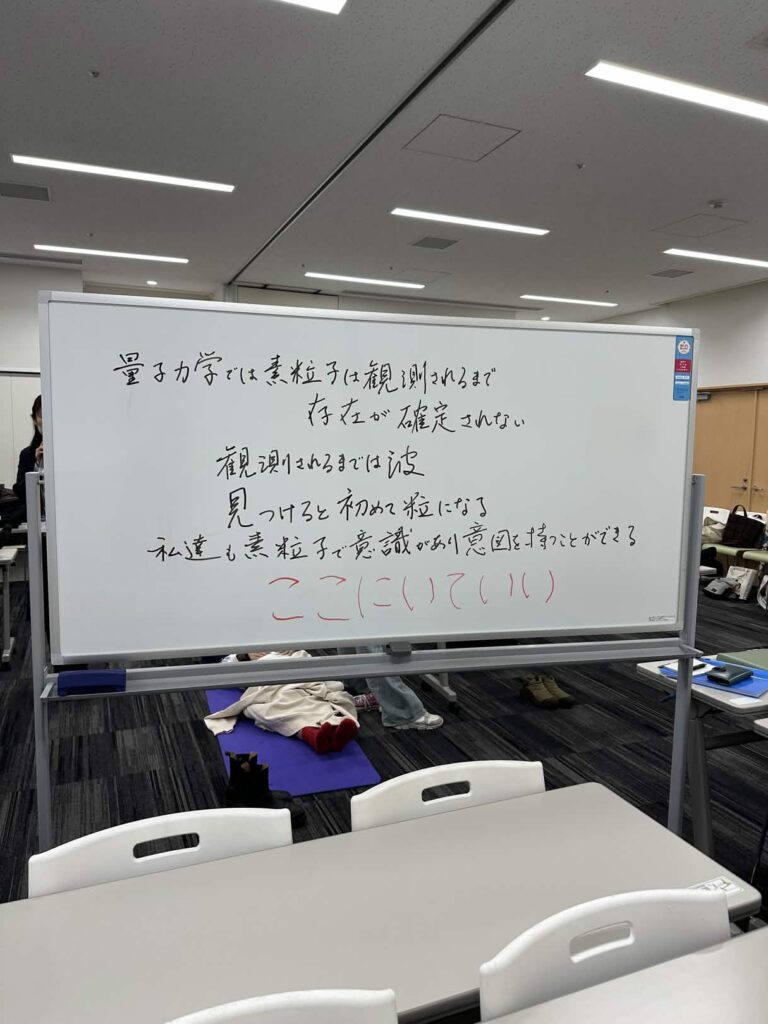 量子力学では素粒子は観測されるまで
存在が確定されない
観測されるまでは波
見つけると初めて粒になる
私達も素粒子で意識があり意図を持つことができる
ここにいていい